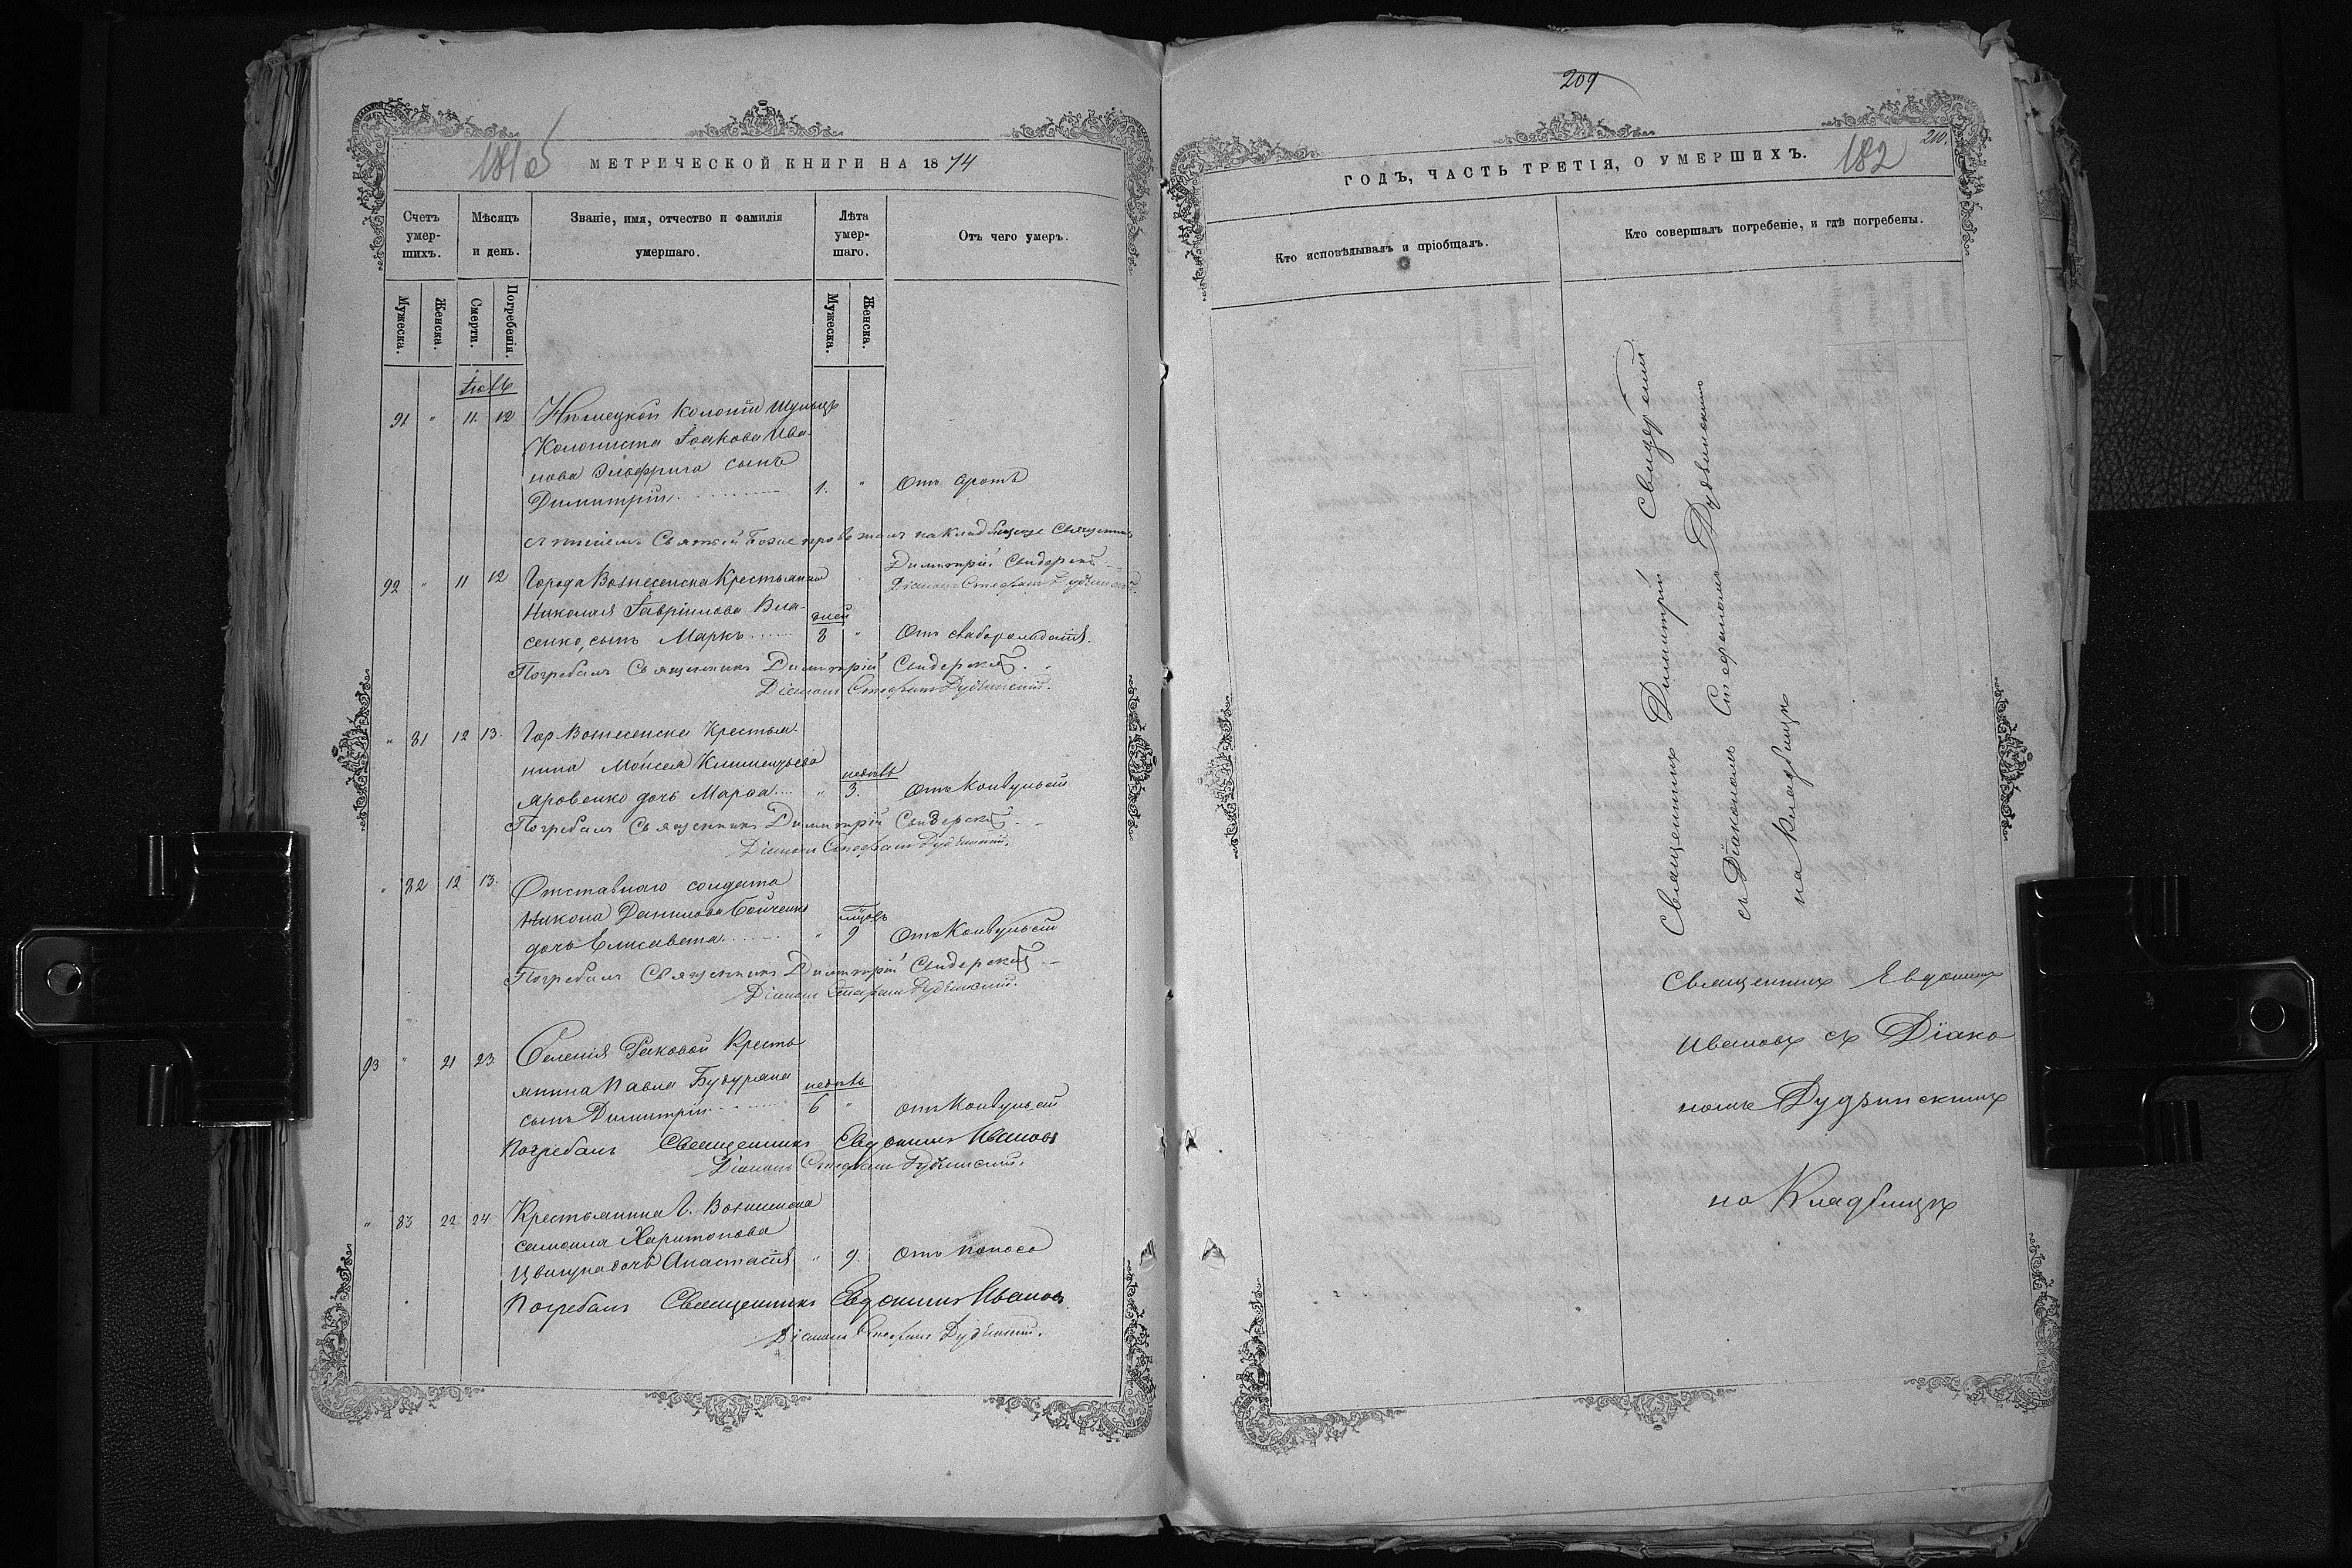 181об
МЕТРИЧЕСКОЙ КНИГИ НА 1874
Счетъ умер-шихъ.
Мѣсяцъ и день.
Званіе, имя, отчество и фамилія умершаго.
Лѣта умер-шаго.
Отъ чего умеръ.
Мужеска.
Женска.
Смерти.
Погребенія.
Мужеска.
Женска.
Іюль
91 " 11. 12 Нѣмецкой Колоніи Шульцъ
Колониста Іоакова Ива-
нова сынъ
Димитрій 1. " Отъ
съ пѣніемъ Святый Боже на кладбище Священникъ
Димитрій Свидерскій
Діаконъ Стефанъ Дудзинскій.
92 " 11 12 Города Вознесенска Крестьянина
Николая Гавріилова Вла-
дней
сенко, сынъ Маркъ 8 " Отъ
Погребалъ Священникъ Димитрій Свидерскій.
Діаконъ Стефанъ Дудзинскій.
" 81 12 13. Гор. Вознесенска Крестья-
нина Моисея Климентьева
недѣль
Яровенко дочь Марѳа " 3. Отъ Конвульсій
Погребалъ Священникъ Димитрій Свидерскій
Діаконъ Стефанъ Дудзинскій.
" 82 12 13. Отставного солдата
Никона Данилова Бойченко
дочь Елисавета " 9 Отъ Конвульсій
Погребалъ Священникъ Димитрій Свидерскій
Діаконъ Стефанъ Дудзинскій.
93 " 21 23 Селенія Раковой Кресть
янина Павла
недѣль
сынъ Димитрій 6 " отъ Конвульсій
Погребалъ Священникъ Евдокимъ Ивановъ
Діаконъ Стефанъ Дудзинскій.
" 83 22 24 Крестьянина г. Вознесенска
Самоила Харитонова
Цвигуна дочь Анастасія " 9. Отъ поноса
Погребалъ Священникъ Евдокимъ Ивановъ
Діаконъ Стефанъ Дудзинскій.
209
210.
182
ГОДЪ, ЧАСТЬ ТРЕТІЯ, О УМЕРШИХЪ.
Кто исповѣдывалъ и пріобщалъ.
Кто совершалъ погребеніе, и гдѣ погребены.
Священникъ Димитрій Свидерскій
съ Діакономъ Стефаномъ Дудзинскимъ
на Кладбищѣ
Священникъ Евдокимъ
Ивановъ съ Діако
номъ Дудзинскимъ
на Кладбищѣ